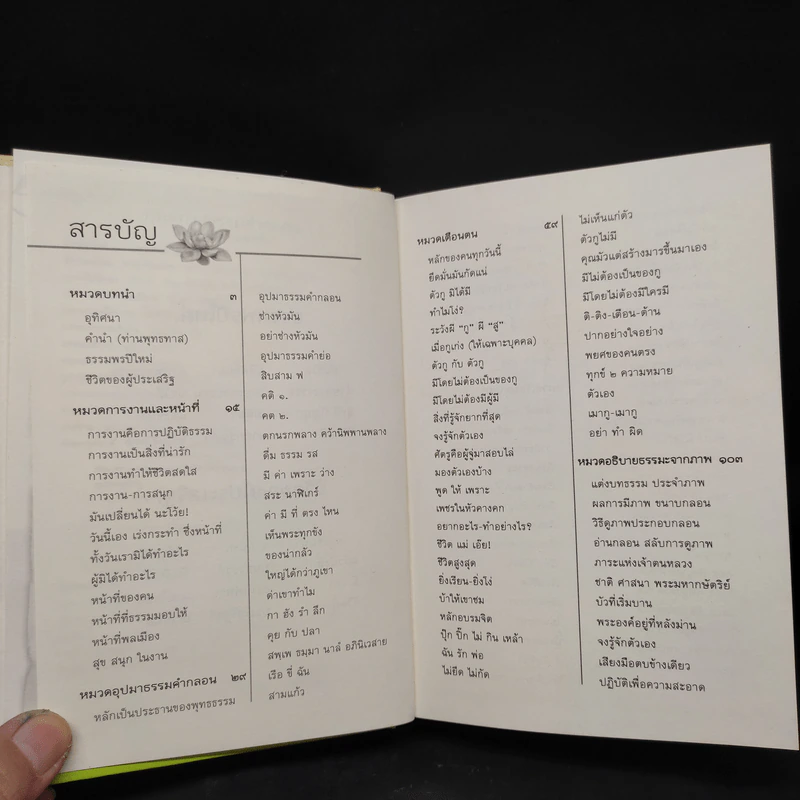 สารบัญ
หมวดบทนำ ๓
อุทิศนา
คำนำ (ท่านพุทธทาส)
ธรรมพรปีใหม่
ชีวิตของผู้ประเสริฐ
หมวดการงานและหน้าที่ ๑๕
การงานคือการปฏิบัติธรรม
การงานเป็นสิ่งที่น่ารัก
การงานทำให้ชีวิตสดใส
การงาน-การสนุก
มันเปลี่ยนได้ นะโว้ย!
วันนี้เอง เร่งกระทำ ซึ่งหน้าที่
ทั้งวันเรามิได้ทำอะไร
ผู้มิได้ทำอะไร
หน้าที่ของคน
หน้าที่ที่ธรรมมอบให้
หน้าที่พลเมือง
สุข สนุก ในงาน
หมวดอุปมาธรรมคำกลอน ๒๙
หลักเป็นประธานของพุทธธรรม
อุปมาธรรมคำกลอน
ช่างหัวมัน
อย่าช่างหัวมัน
อุปมาธรรมคำย่อ
สิบสาม ฟ
คติ ๑.
คต ๒.
ตกนรกพลาง คว้านิพพานพลาง
ดื่ม ธรรม รส
มี ค่า เพราะ ว่าง
สระ นาฬิเกร์
ค่า มี ที่ ตรง ไหน
เห็นพระทุกขัง
ของน่ากลัว
ใหญ่ได้กว่าภูเขา
ด่าเขาทำไม
กา ฮัง รำ ลึก
คุย กับ ปลา
สพฺเพ ธมฺมา นาลํ อภินิเวสาย
เรือ ชี่ ฉัน
สามแก้ว
หมวดเตือนตน ๕๙
หลักของคนทุกวันนี้
ยึดมั่นมันกัดแน่
ตัวกู มิได้มี
ทำไมโง่?
ระวังผี "กู" ผี "สู"
เมื่อกูเก่ง (ให้เฉพาะบุคคล)
ตัวกู กับ ตัวกู
มีโดยไม่ต้องเป็นของกู
มีโดยไม่ต้องมีผู้มี
สิ่งที่รู้จักยากที่สุด
จงรู้จักตัวเอง
ศัตรูคือผู้จู่มาสอบไล่
มองตัวเองบ้าง
พูด ให้ เพราะ
เพชรในหัวคางคก
อยากอะไร-ทำอย่างไร?
ชีวิต แม่ เอ๊ย!
ชีวิตสูงสุด
ยิ่งเรียน-ยิ่งโง่
บ้าให้เขาชม
หลักอบรมจิต
ปุ๊ก ปิ๊ก ไม่ กิน เหล้า
ฉัน รัก พ่อ
ไม่ยึด ไม่กัด
ไม่เห็นแก่ตัว
ตัวกูไม่มี
คุณมัวแต่สร้างมารขึ้นมาเอง
มีไม่ต้องเป็นของกู
มีโดยไม่ต้องมีใครมี
ติ-ติง-เตือน-ด้าน
ปากอย่างใจอย่าง
พยศของคนตรง
ทุกข์ ๒ ความหมาย
ตัวเอง
เมากู-เมากู
อย่า ทำ ผิด
หมวดอธิบายธรรมะจากภาพ ๑๐๓
แต่งบทธรรม ประจำภาพ
ผลการมีภาพ ขนาบกลอน
วิธีดูภาพประกอบกลอน
อ่านกลอน สลับการดูภาพ
ภาระแห่งเจ้าตนหลวง
ชาติ ศาสนา พระมหากษัตริย์
บัวที่เริ่มบาน
พระองค์อยู่ที่หลังม่าน
จงรู้จักตัวเอง
เสียงมือตบข้างเดียว
ปฏิบัติเพื่อความสะอาด